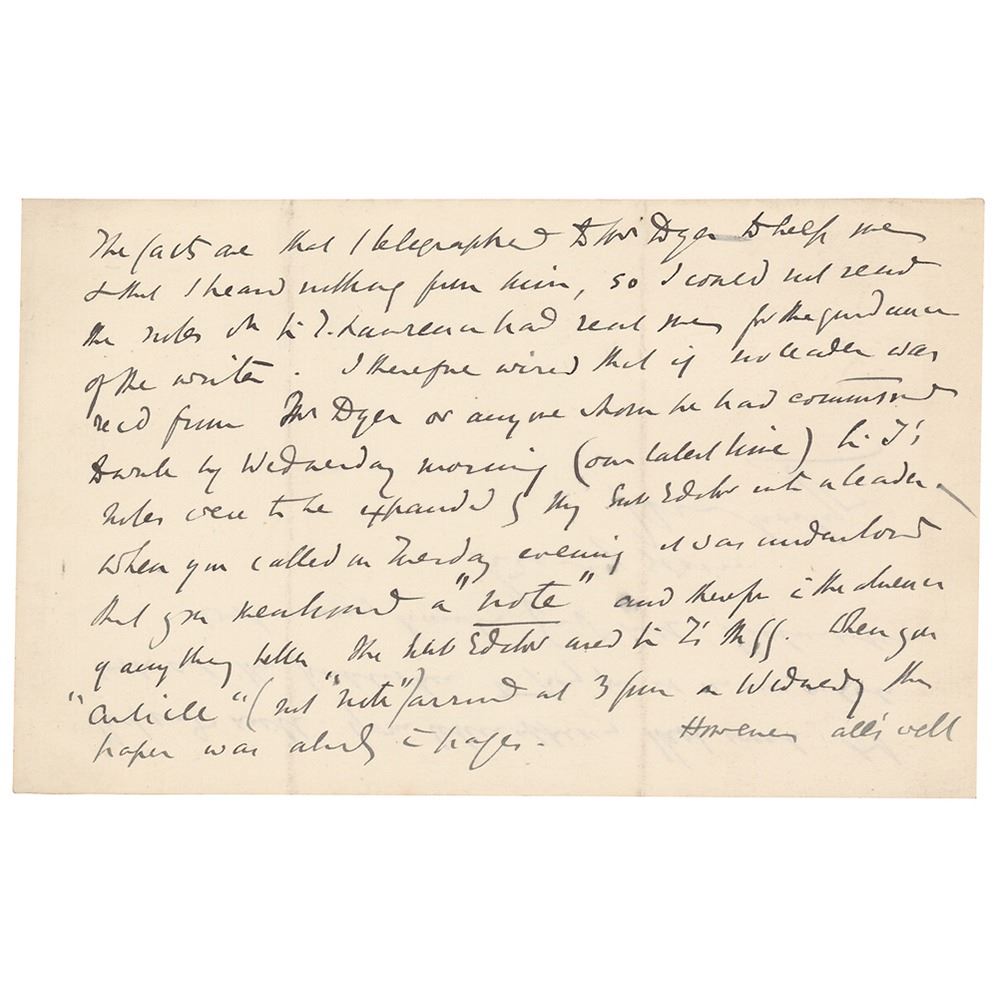 The facts are that I telegraphed to Mr Dyer to help me
& that I heard nothing from him, so I could not send
the notes wh Sir T. Lawrence had sent me for the guidance
of the writer. I therefore wired that if no leader was
recd from Mr Dyer or anyone whom he had commissioned
to write by Wednesday morning (our latest time) Sir T's
notes were to be expanded by my Sub Editor into a leader.
When you called on Tuesday evening it was understood
that you mentioned a "note" and therefore in the absence
of anything better the Sub Editor used Sir T's MSS. When your
"article" (not "note") arrived at 3 pm on Wednesday the
paper was already in pages. However all's well